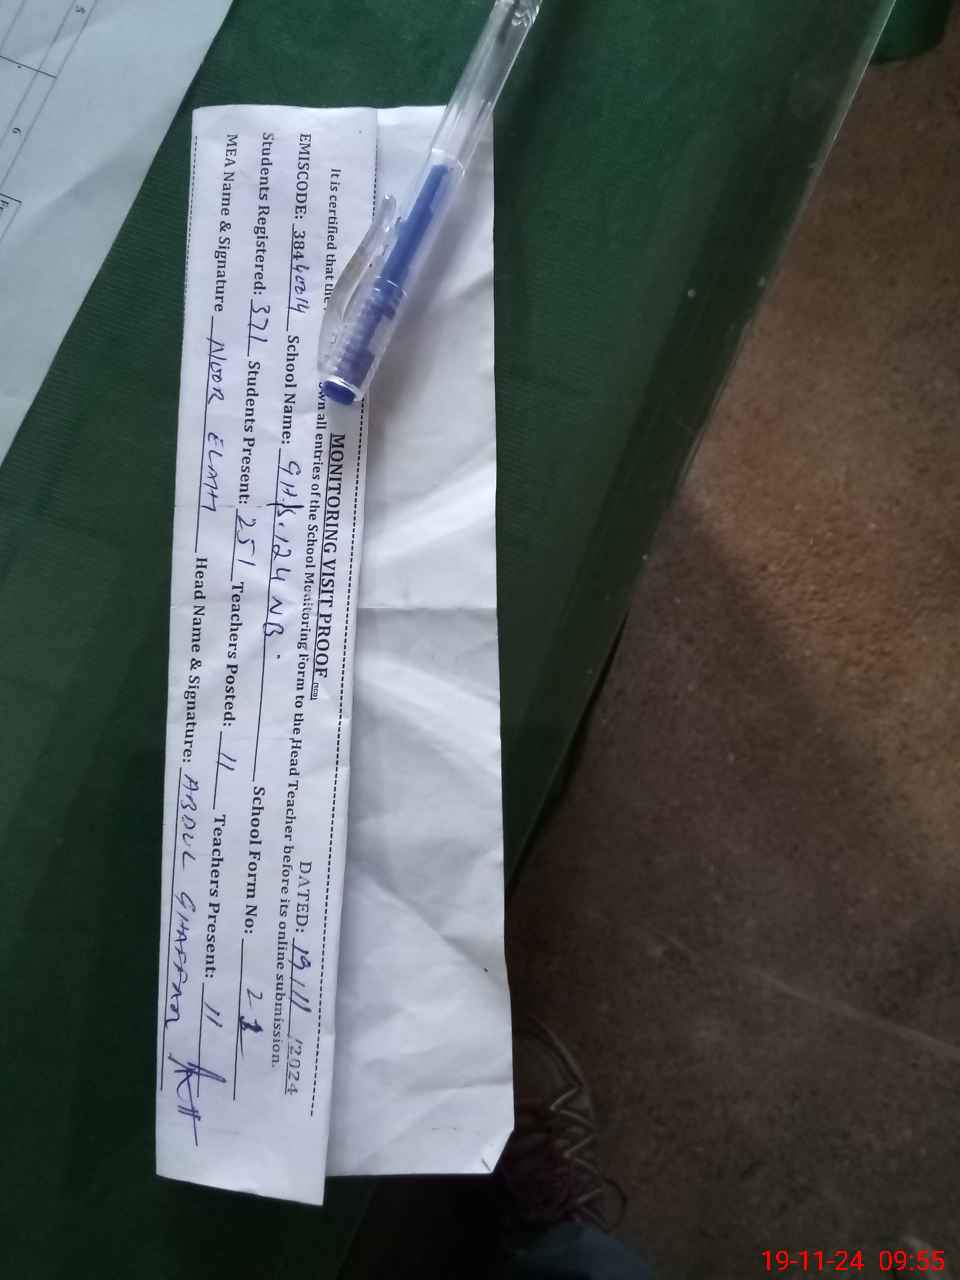 MONITORING VISIT PROOF
DATED: 19/11/2024
It is certified that the own all entries of the School Monitoring Form to the Head Teacher before its online submission.
EMISCODE: 38440014 School Name: GHS. 124 NB. School Form No: 2
Students Registered: 371 Students Present: 251 Teachers Posted: 11 Teachers Present: 11
MEA Name & Signature NOOR ELAHI Head Name & Signature: ABDUL GHAFFAR
5
6
19-11-24 09:55